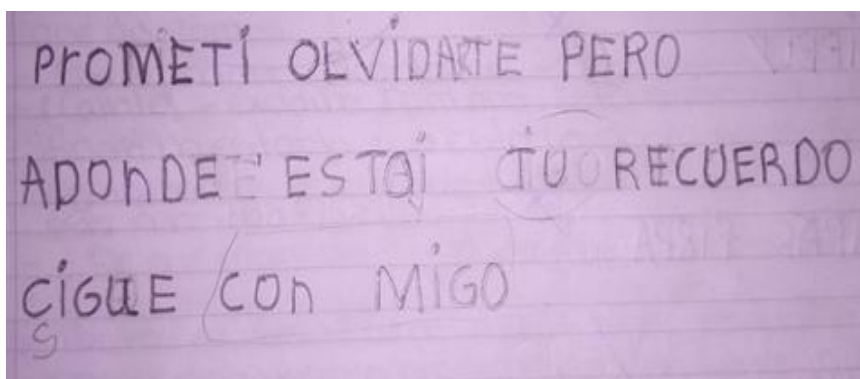 PrOMETÍ OLVIDARTE PERO
ADONDE ESTAi TU RECUERDO
CiGUE CON MiGO
S